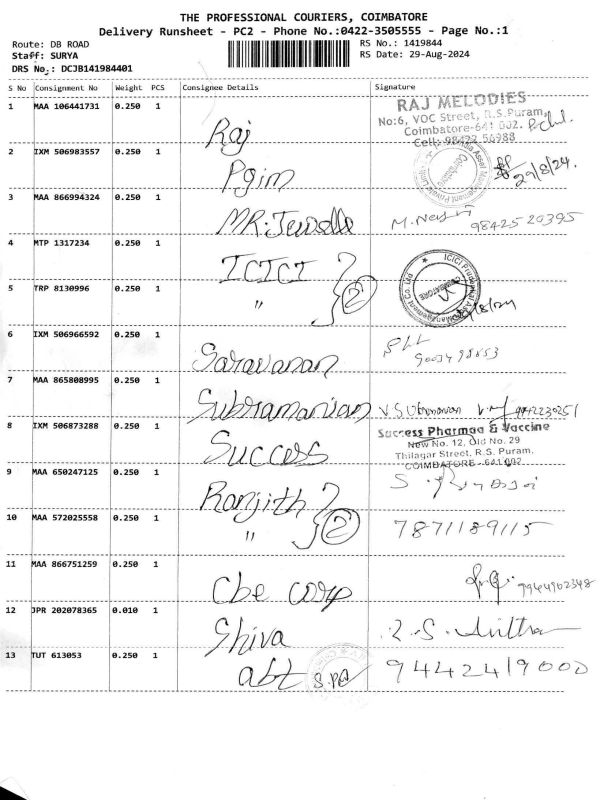 THE PROFESSIONAL COURIERS, COIMBATORE
Delivery Runsheet - PC2 - Phone No.:0422-3505555 - Page No.:1
Route: DB ROAD
RS No.: 1419844
Staff: SURYA
RS Date: 29-Aug-2024
DRS No.: DCJB141984401
S No Consignment No Weight PCS Consignee Details Signature
1 MAA 106441731 0.250 1
Raj
RAJ MELODIES
No:6, VOC Street, R.S.Puram,
Coimbatore-641 002.
Cell: 98422 56988
2 IXM 506983557 0.250 1
Pgim
29/8/24.
3 MAA 866994324 0.250 1
MR. Jewells
98425 20395
4 MTP 1317234 0.250 1
ICICI
5 TRP 8130996 0.250 1
" 2
COIMBATORE
6 IXM 506966592 0.250 1
Saravanan
7 MAA 865808995 0.250 1
Subramanian
8 IXM 506873288 0.250 1
Success
Success Pharmaa & Vaccine
New No. 12, Old No. 29
Thilagar Street, R.S. Puram,
COIMBATORE - 641 002
9 MAA 650247125 0.250 1
Ranjith
10 MAA 572025558 0.250 1
" 2
7871189115
11 MAA 866751259 0.250 1
Cbe corp
9944902348
12 JPR 202078365 0.010 1
Shiva
13 TUT 613053 0.250 1
abt
9442419000